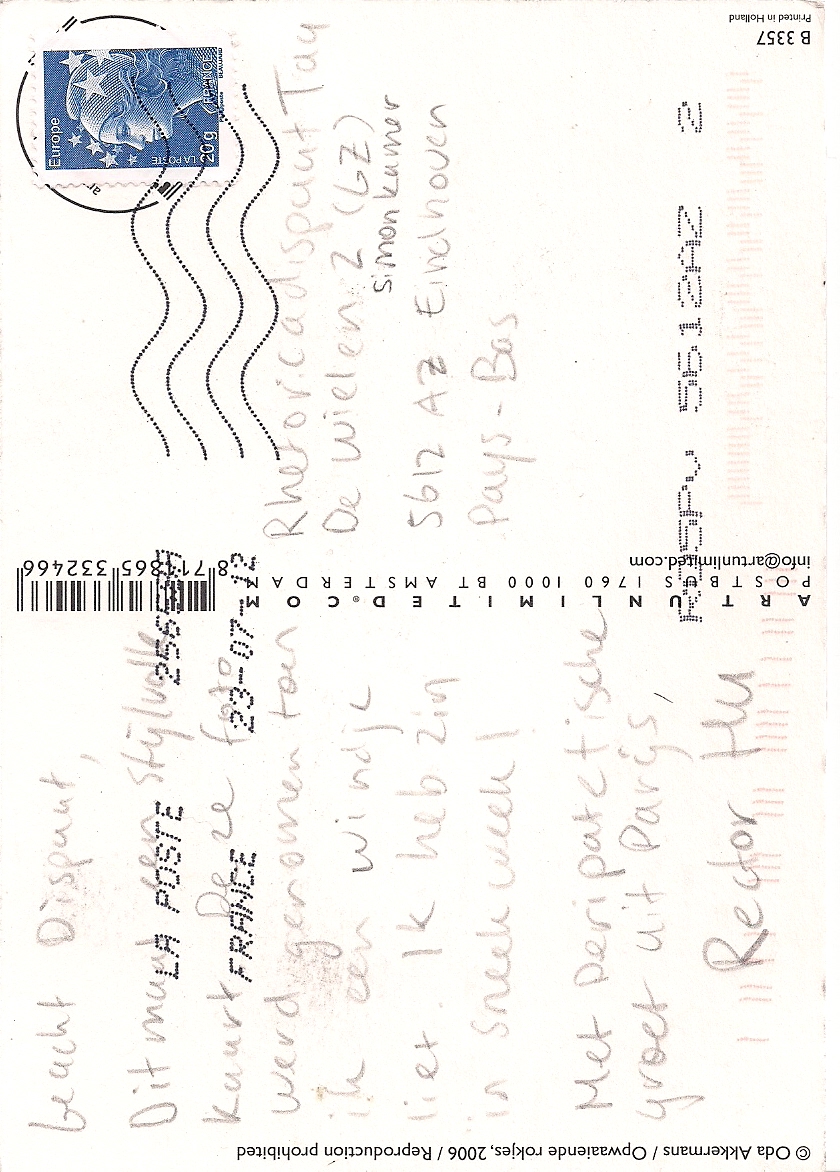 Geacht Dispuut,
Dit maal een stijlvolle
kaart. Deze foto
werd genomen toen
ik een windje
liet. Ik heb zin
in sneekweek!
Met peripatetische
groet uit Parijs,
Rector Hu
LA POSTE
FRANCE 23-07-12
Rhetoricadispuut Tau
De Wielen 2 (GZ)
simonkamer
5612 AZ Eindhoven
Pays-Bas
Europe
LA POSTE
20g
FRANCE
5612AZ 2
8 711865 332466
ART UNLIMITED.COM
POSTBUS 1760 1000 BT AMSTERDAM
info@artunlimited.com
B 3357
Printed in Holland
© Oda Akkermans / Opwaaiende rokjes, 2006 / Reproduction prohibited